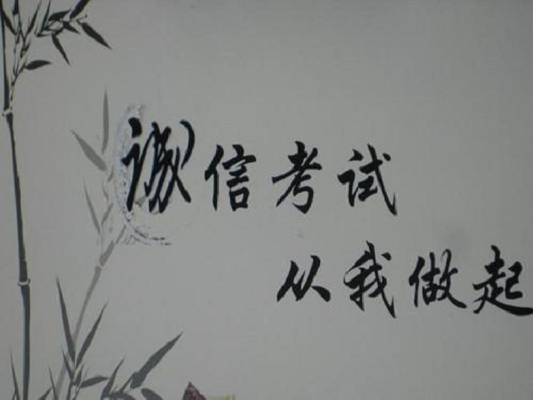 诚信考试
从我做起